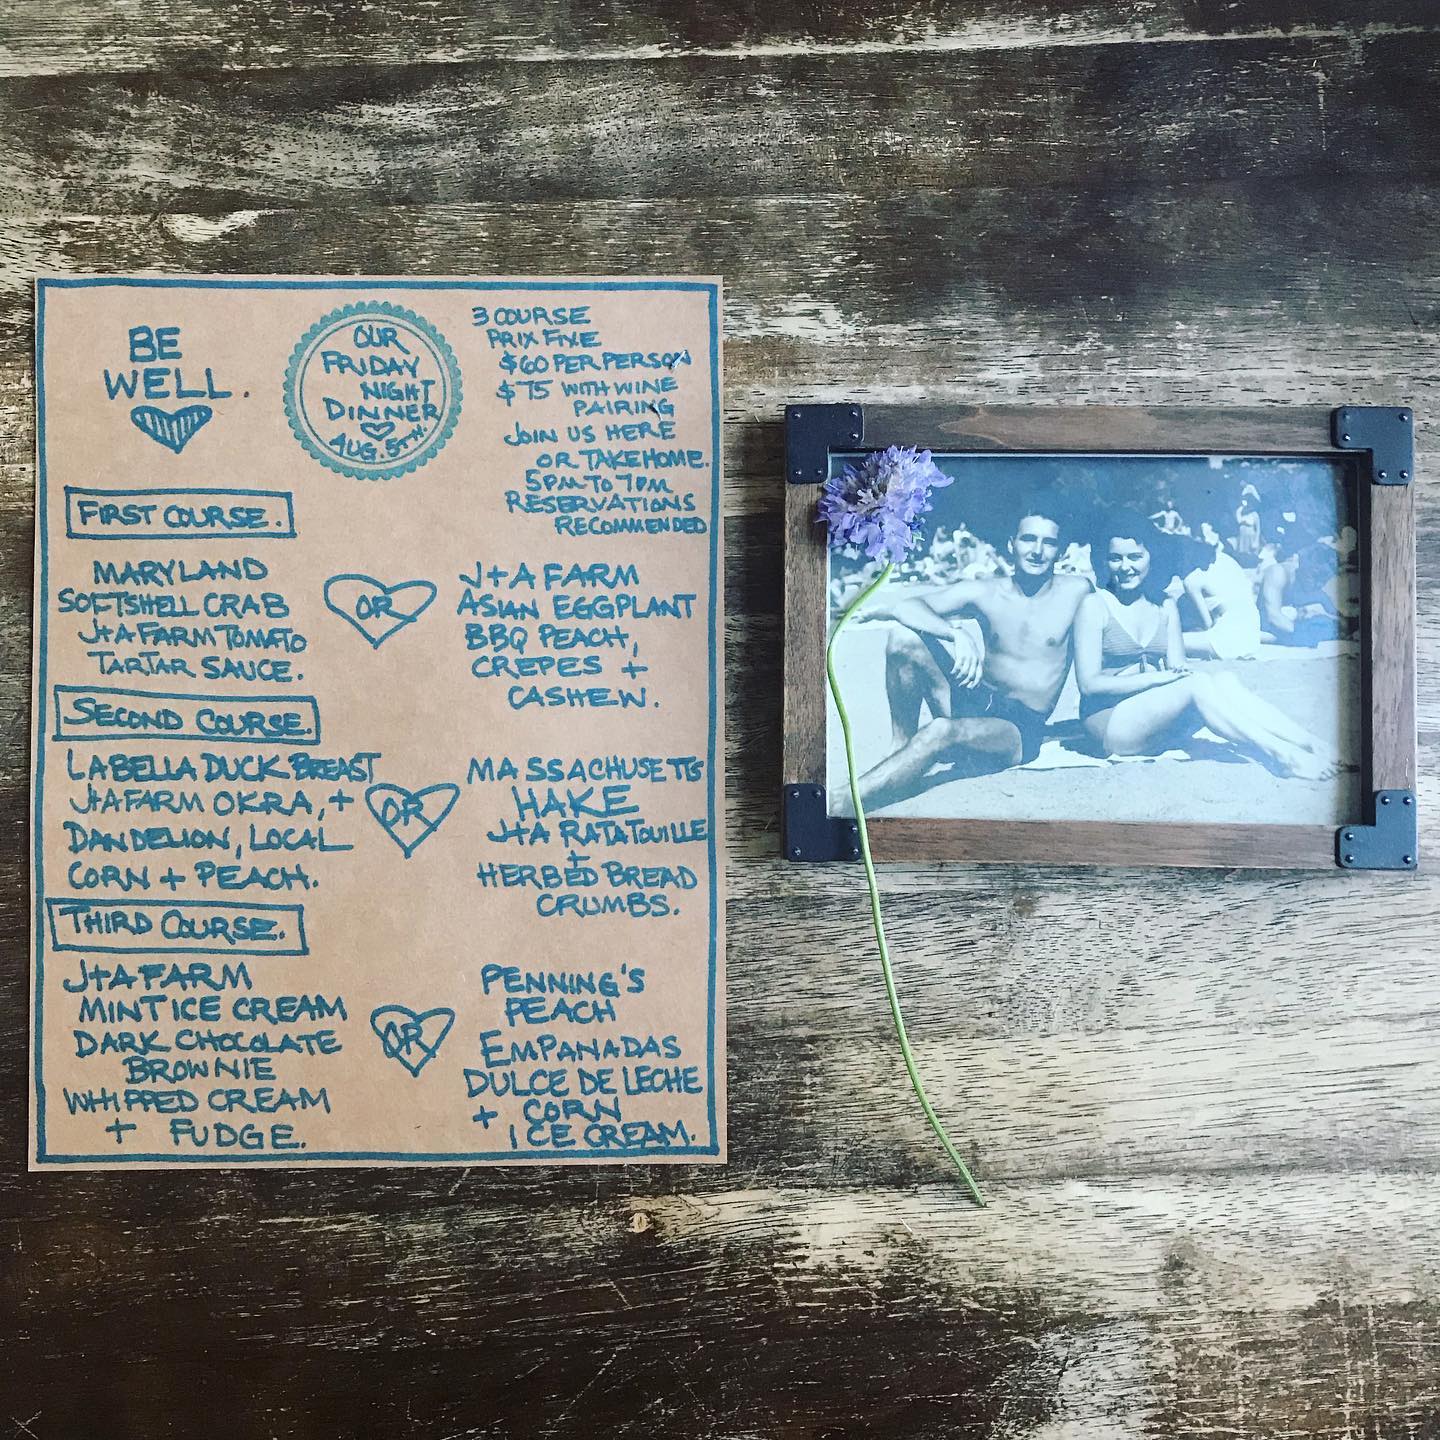 BE
WELL.
OUR
FRIDAY
NIGHT
DINNER
AUG. 5TH.
3 COURSE
PRIX FIXE
$60 PER PERSON
$75 WITH WINE
PAIRING
JOIN US HERE
OR TAKE HOME.
5PM TO 7PM
RESERVATIONS
RECOMMENDED
FIRST COURSE.
MARYLAND
SOFTSHELL CRAB
J+A FARM TOMATO
TARTAR SAUCE.
OR
J+A FARM
ASIAN EGGPLANT
BBQ PEACH,
CREPES +
CASHEW.
SECOND COURSE.
LABELLA DUCK BREAST
J+A FARM OKRA, +
DANDELION, LOCAL
CORN + PEACH.
OR
MASSACHUSETTS
HAKE
J+A RATATOUILLE
+
HERBED BREAD
CRUMBS.
THIRD COURSE.
J+A FARM
MINT ICE CREAM
DARK CHOCOLATE
BROWNIE
WHIPPED CREAM
+ FUDGE.
OR
PENNING'S
PEACH
EMPANADAS
DULCE DE LECHE
+ CORN
ICE CREAM.